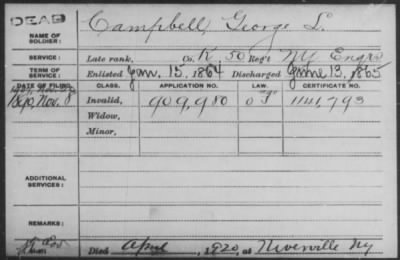 DEAD
NAME OF SOLDIER: Campbell, George L.
SERVICE: Late rank, Co. K 50 Reg't NY Engrs
TERM OF SERVICE: Enlisted Jan. 15, 1864 Discharged June 13, 1865
DATE OF FILING. CLASS. APPLICATION NO. LAW. CERTIFICATE NO.
1890, Nov. 8 Invalid, 909,980 1141,793
Widow,
Minor,
ADDITIONAL SERVICES:
REMARKS:
Died April, 1920, at Niverville NY